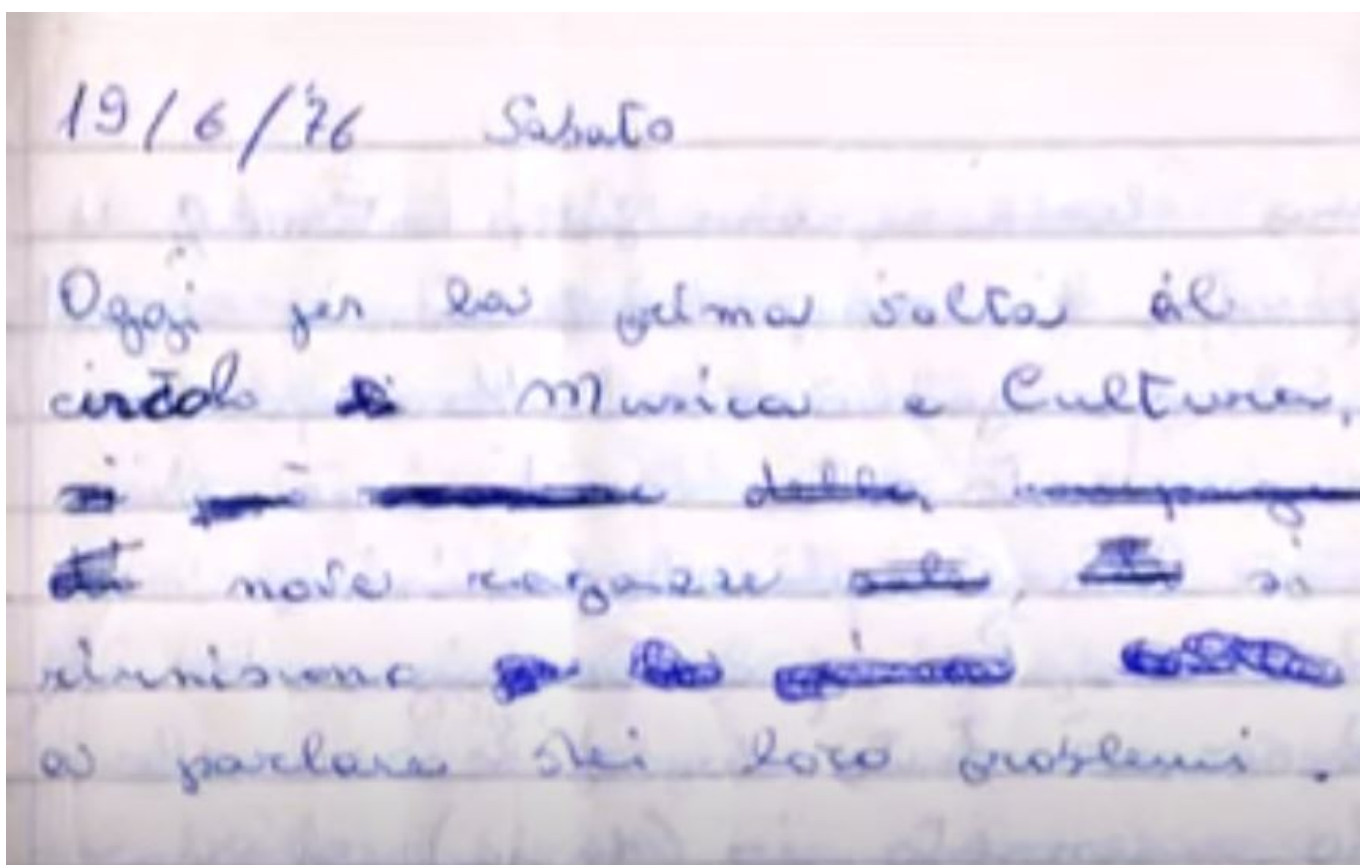 19/6/76 Sabato
Oggi per la prima volta al
circolo Musica e Cultura,
nove ragazze, si
riuniscono
a parlare dei loro problemi.